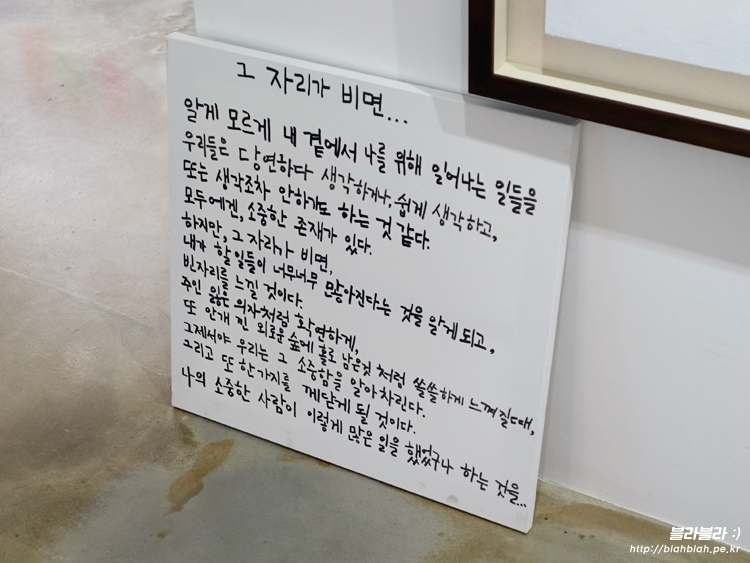 그 자리가 비면...
알게 모르게 내 곁에서 나를 위해 일어나는 일들을
우리들은 당연하다 생각하거나, 쉽게 생각하고,
또는 생각조차 안하기도 하는 것 같다.
모두에겐, 소중한 존재가 있다.
하지만, 그 자리가 비면,
내가 할 일들이 너무너무 많아진다는 것을 알게 되고,
빈자리를 느낄 것이다.
주인 잃은 의자처럼 확연하게,
또 안개 낀 외로운 숲에 홀로 남은것 처럼 쓸쓸하게 느껴질때,
그제서야 우리는 그 소중함을 알아차린다.
그리고 또 한가지를 깨닫게 될 것이다.
나의 소중한 사람이 이렇게 많은 일을 했었구나 하는 것을...
블라블라 :)
http://blahblah.pe.kr